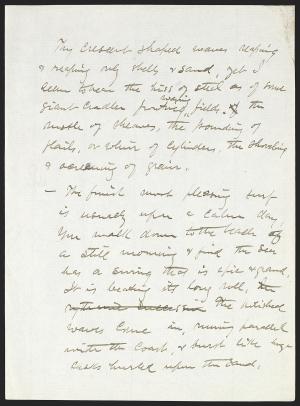 The crescent shaped waves reaping
& reaping only shells & sand, yet I
seem to hear the hiss of steel as of some
giant cradler fields. & the
rustle of sheaves, the pounding of
flails, or whirr of cylinders, the
& screening of grain.
— The finest most pleasing surf
is usually upon a calm day.
You walk down to the beach of
a still morning & find the sea
has a swing that is epic & grand.
It is beating its long roll. In
rythmed succession the polished
waves come in, running parallel
with the coast, & burst like huge
casks hurled upon the sand.